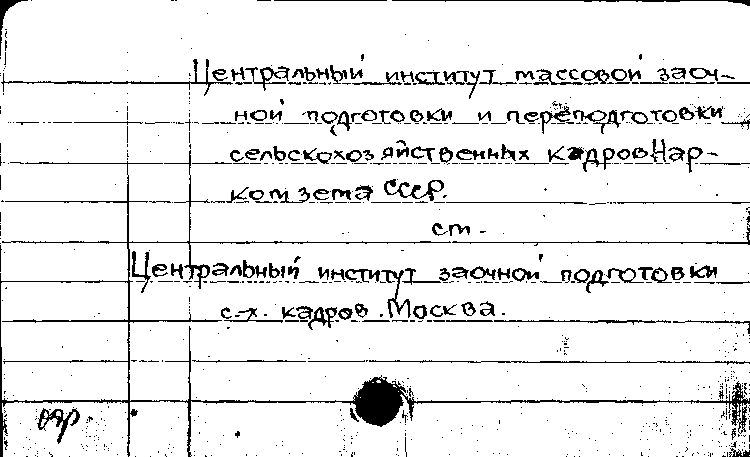 Центральный институт массовой заоч-
ной подготовки и переподготовки
сельскохозяйственных кадров Нар-
комзема СССР.
см.
Центральный институт заочной подготовки
с.-х. кадров. Москва.